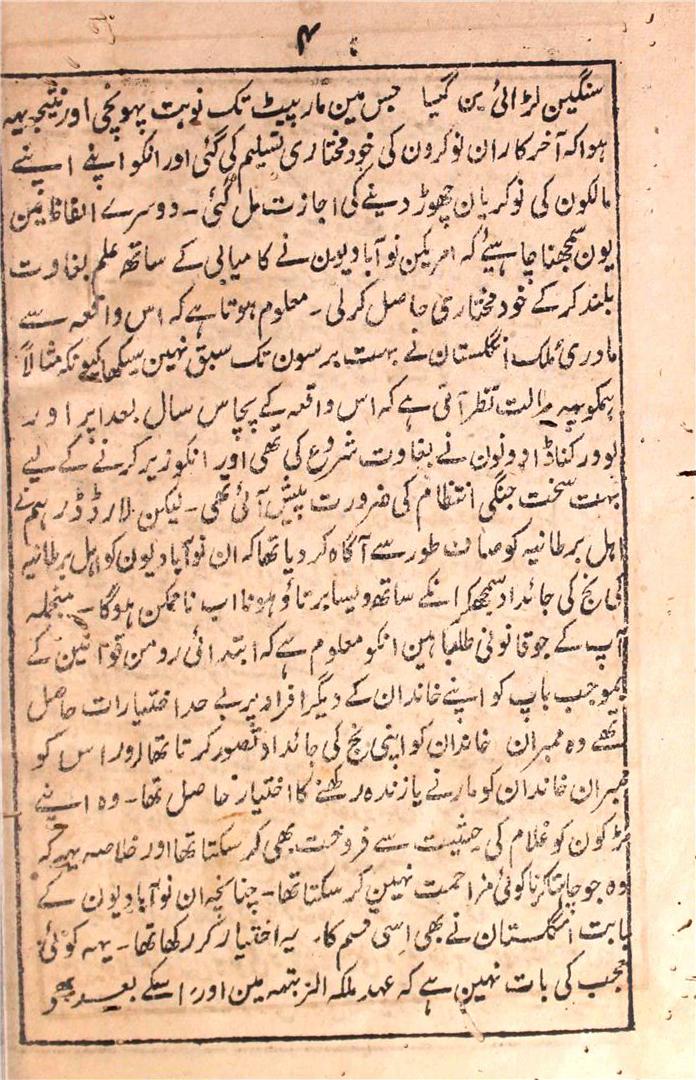 ۴
سنگین لڑائی بن گیا جس مین مار پیٹ تک نوبت پہونچی اور نتیجہ یہہ
ہوا کہ آخر کار ان نوکرون کی خود مختاری تسلیم کی گئی اور انکو اپنے اپنے
مالکون کی نوکریان چھوڑ دینے کی اجازت مل گئی۔ دوسرے الفاظ مین
یون سمجھنا چاہیئے کہ امریکن نوآبادیون نے کامیابی کے ساتھ علم بغاوت
بلند کر کے خود مختاری حاصل کرلی۔ معلوم ہوتا ہے کہ اس واقعہ سے
مادری ملک انگلستان نے بہت برسون تک سبق نہین سیکھا کیونکہ مثالاً
ہمکو یہہ حالت نظر آتی ہے کہ اس واقعہ کے پچاس سال بعد اپر اور
لوور کناڈا دونون نے بغاوت شروع کی تھی اور انکو زیر کرنے کے لیے
بہت سخت جنگی انتظام کی ضرورت پیش آئی تھی۔ لیکن لارڈ ڈرہم نے
اہل برطانیہ کو صاف طور سے آگاہ کر دیا تھا کہ ان نوآبادیون کو اہل برطانیہ
کی نج کی جائداد سمجھکر انکے ساتھ ویسا برتاؤ ہونا اب ناممکن ہوگا۔ منجملہ
آپ کے جو قانونی طلبا ہین انکو معلوم ہے کہ ابتدائی رومن قوانین کے
بموجب باپ کو اپنے خاندان کے دیگر افراد پر بے حد اختیارات حاصل
تھے وہ ممبران خاندان کو اپنی نج کی جائداد تصور کرتا تھا اور اس کو
ممبران خاندان کو مارنے یا زندہ رکھنے کا اختیار حاصل تھا۔ وہ اپنے
لڑکون کو غلام کی حیثیت سے فروخت بھی کر سکتا تھا اور خلاصہ یہہ کہ
وہ جو چاہتا کرتا کوئی مزاحمت نہین کر سکتا تھا۔ چنانچہ ان نوآبادیون کے
بابت انگلستان نے بھی اسی قسم کا یہ اختیار کر رکھا تھا۔ یہہ کوئی
تعجب کی بات نہین ہے کہ عہد ملکہ الزبتھ مین اور اسکے بعد بھی